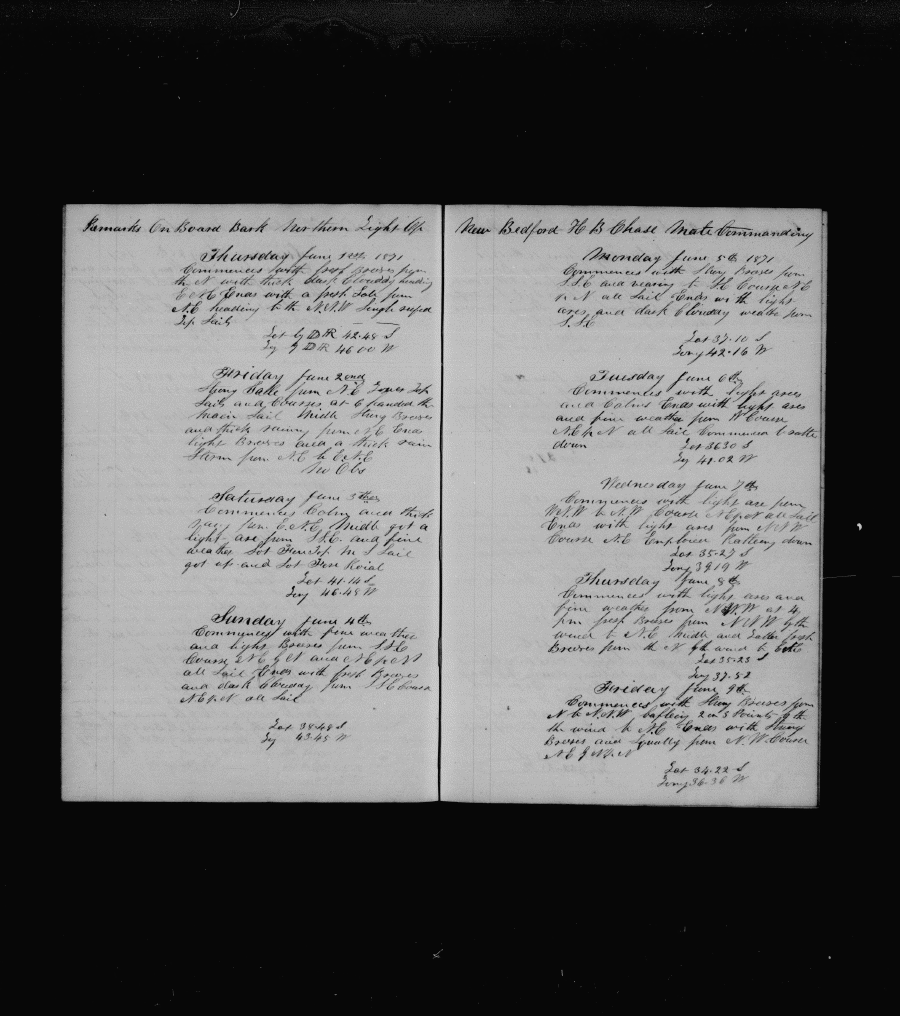 Remarks On Board Bark Northern Light Of
Thursday June 1st 1871
Commences with fresh Breeses from
the N with thick Cloudy heading
E N E Ends with a fresh Gale from
N.E heading to the N.N.W Single reefed
Top Sails
Lat by DR 42.48 S
Lg by DR 46 00 W
Friday June 2nd
Strong Gale from N.E
Sails and Courses at 6 handed the
main Sail Middle Strong Breeses
and thick rainy from N E Ends
light Breeses and a thick rain
Storm from N.E to E.N.E
No Obs
Saturday June 3th
Commences Calm and thick
rainy from E.N.E. Midle got a
light are from S.E. and fine
weather Sot Top M Sail
got up and Sot Fore Roial
Lat 41.14 S
Long 46.48 W
Sunday June 4th
Commences with fine weather
and light Breeses from S.S.E
Course N E and N E p N
all Sail Ends with fresh Breeses
and dark Clouday from Course
N E p N all Sail
Lat 38.48 S
Lg 43.45 W
New Bedford H B Chase Mate Commanding
Monday June 5th 1871
Commences with Strong Breeses from
S.S.E and vearing to Course N E
p N all Sail Ends with light
ares, and dark Clouday weather from
S.
Lat 37.10 S
Long 42.16 W
Tuesday June 6th
Commences with light ares
and Calms Ends with light ares
and fine weather from W Course
N.E p N all Sail Commenced to rattle
down Lat 36 30 S
Lg 41.02 W
Wednesday June 7th
Commences with light are from
W.N.W to N.W Course N E p N all Sail
Ends with light ares from N.N.W
Course N.E Employed Ratling down
Lat 35.27 S
Long 39 19 W
Thursday June 8th
Commences with light ares and
fine weather from N.N.W at 4
pm fresh Breeses from N.N.W by the
wind to N.E Midle and Latter fresh
Breeses from the N by the wind to
Lat 35.23 S
Long 37.52
Friday June 9th
Commences with Strong Breeses from
N to N.N.W bafling 2 or 3 Points by the
the wind to N.E Ends with Strong
Breses and Squally from N.W Course
N E
Lat 34.22 S
Long 36.36 W